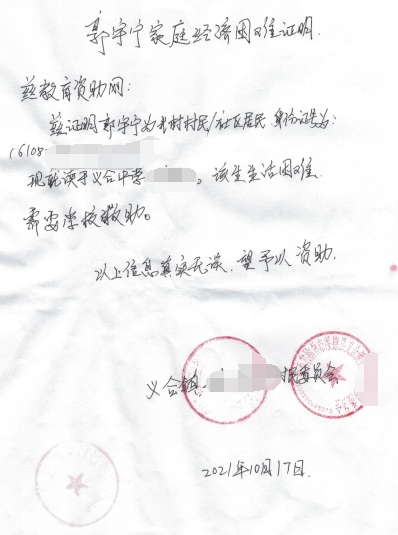 郭宇宁家庭经济困难证明.
慈教育资助网:
兹证明郭宇宁为我村村民/社区居民 身份证号为:
(6108
现就读于义合中学 。该生生活困难
需要学校救助。
以上信息真实无误.望予以资助.
义合镇 民委员会
2021年10月17日.